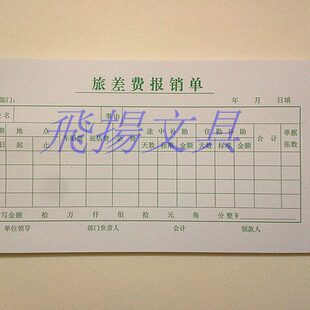 旅差费报销单
部门: 年 月 日填
姓名 事由
期 地 点 途中补助 住勤补助 合计 单据
日 起 止 天数 标准 金额 天数 标准 金额 张数
飛揚文具
写金额 拾 万 仟 佰 拾 元 角 分整¥
单位领导 部门负责人 会计 领款人